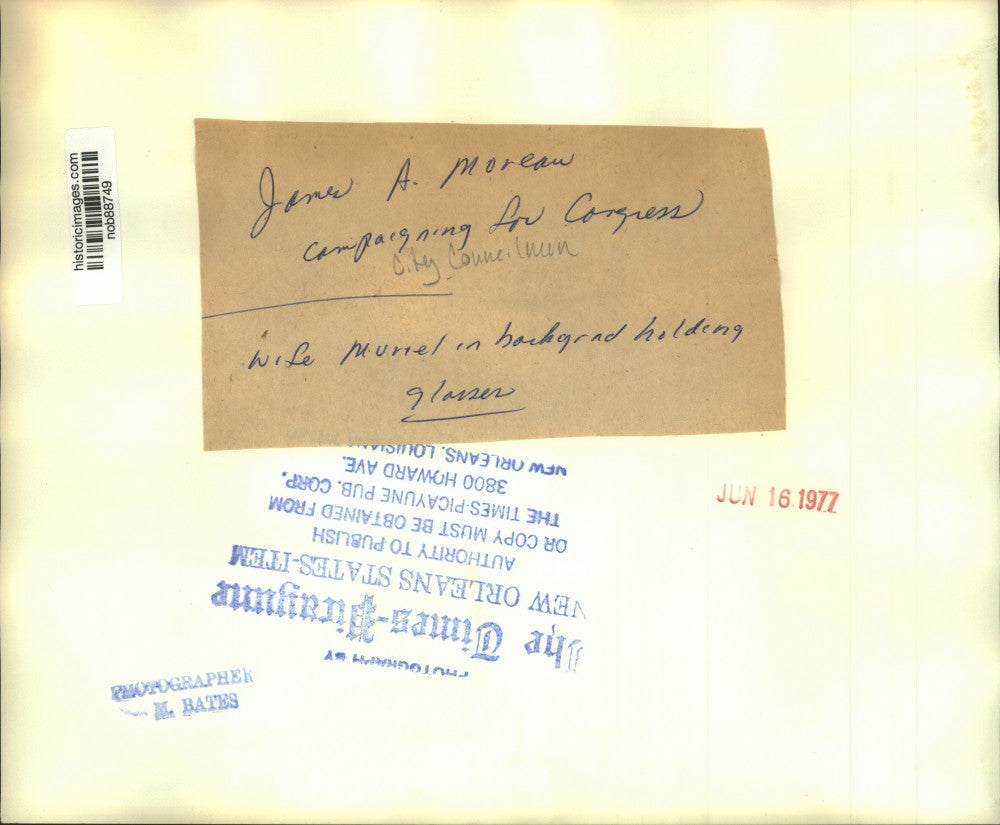 historicimages.com
nob88749
James A. Moreau
campaigning for Congress
City Councilman
Wife Muriel in backgrnd holding
glasses
JUN 16 1977
PHOTOGRAPH BY
The Times-Picayune
NEW ORLEANS STATES-ITEM
AUTHORITY TO PUBLISH
OR COPY MUST BE OBTAINED FROM
THE TIMES-PICAYUNE PUB. CORP.
3800 HOWARD AVE.
NEW ORLEANS, LOUISIANA
PHOTOGRAPHER
M. BATES